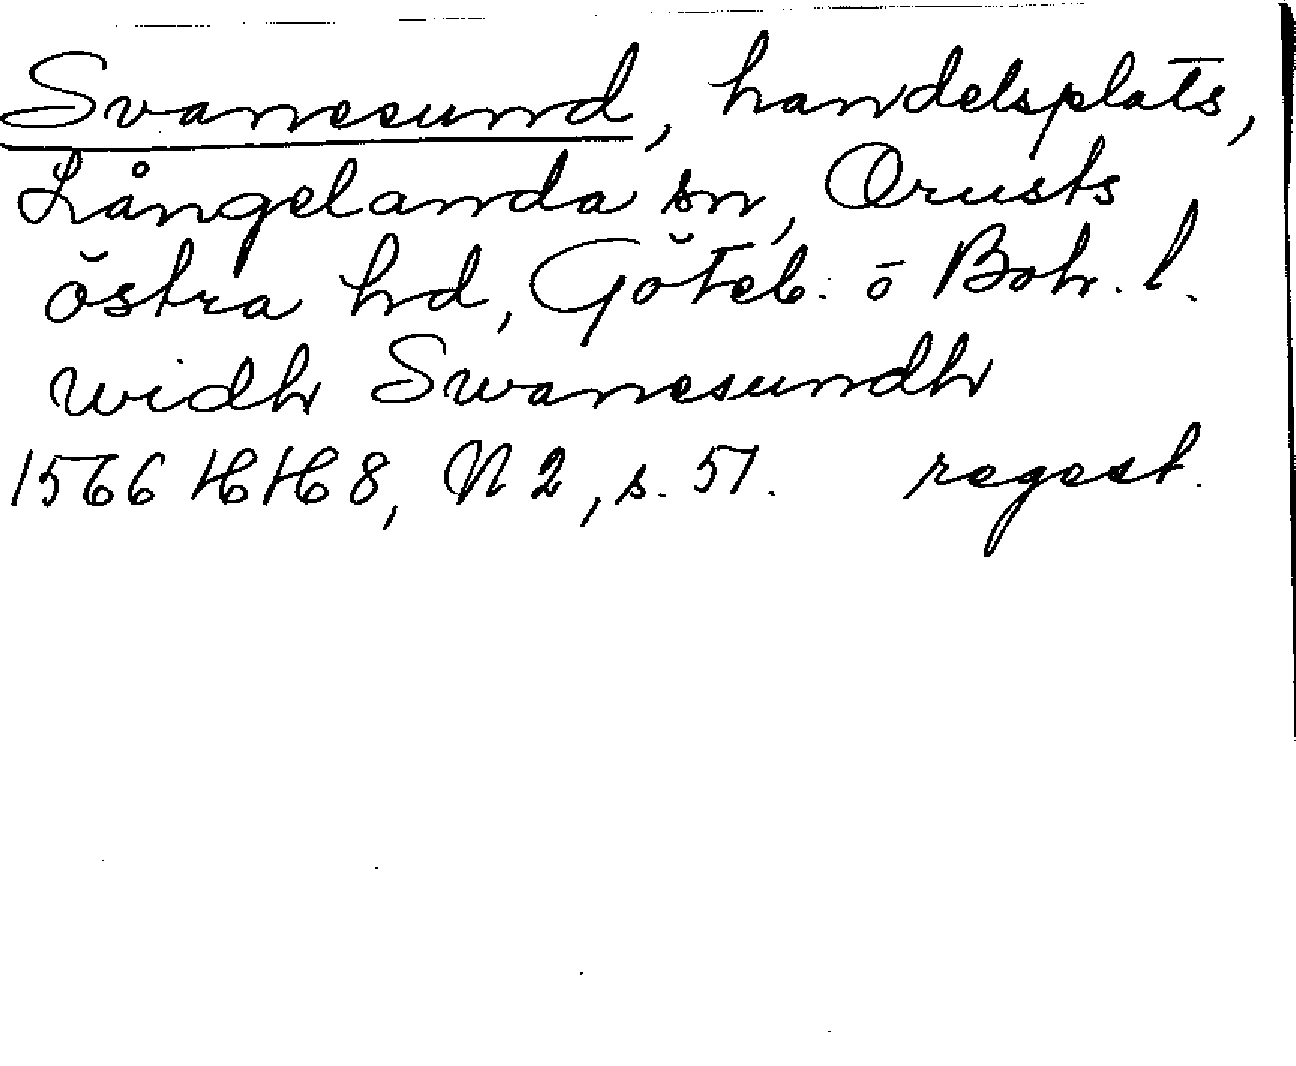 Svanesund, handelsplats,
Långelanda sn, Orusts
östra hd, Göteb. o Boh. l.
widh Swanesundh
1566 HH 8, N 2, s. 51. regest.